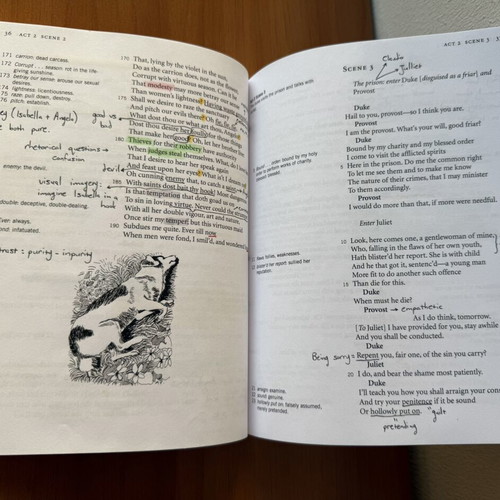 36 ACT 2 SCENE 2
171 carrion. dead carcass.
172 Corrupt . . . season. rot in the life-
giving sunshine.
173 betray our sense. arouse our sexual
desires.
174 lightness. licentiousness.
75 raze. pull down, destroy.
76 pitch. establish.
(Isabella + Angelo)
both pure.
good vs
bad
rhetorical questions →
confusion
enemy. the devil.
devil
visual imagery:
imagine Isabella in a
hood
double. deceptive, double-dealing.
Ever always.
fond. infatuated.
: purity - impurity
170 That, lying by the violet in the sun,
Do as the carrion does, not as the flower,
Corrupt with virtuous season. Can it be
That modesty may more betray our sense
Than women's lightness? Having
175 Shall we desire to raze the sanctuary
And pitch our evils there?
What dost thou or what art thou, Angelo?
Dost thou desire her foully
That make her good? Oh, let her brother live:
180 Thieves for their robbery have authority
When judges steal themselves. What, do I love
That I desire to hear her speak again
And feast upon her eyes? What is't I
Oh cunning enemy that, to catch a saint,
185 With saints dost bait thy hook! Most dangerous
Is that temptation that doth goad us on
To sin in loving virtue. Never could the
With all her double vigour, art and nature,
Once stir my temper: but this virtuous maid
190 Subdues me quite. Ever till now
When men were fond, I smil'd, and wonder'd
ACT 2 SCENE 3
SCENE 3
Juliet
The prison; enter Duke [disguised as a friar] and
Provost
Duke
Hail to you, provost—so I think you are.
Provost
I am the provost. What's your will, good friar?
Duke
Bound by my charity and my blessed order
I come to visit the afflicted spirits
5 Here in the prison. Do me the common right
To let me see them and to make me know
The nature of their crimes, that I may minister
To them accordingly.
Provost
I would do more than that, if more were needful.
Enter Juliet
10 Look, here comes one, a gentlewoman of mine,
Who, falling in the flaws of her own youth,
Hath blister'd her report. She is with child
And he that got it, sentenc'd—a young man
More fit to do another such offence
15 Than die for this.
Duke
When must he die?
Provost → empathetic
As I do think, tomorrow.
[To Juliet] I have provided for you, stay awhile
And you shall be conducted.
Duke
Being sorry = Repent you, fair one, of the sin you carry?
Juliet
20 I do, and bear the shame most patiently.
Duke
I'll teach you how you shall arraign your
And try your penitence if it be sound
Or hollowly put on.
"guilt
"pretending"
bound by my holy
works of charity
flaws. follies, weaknesses.
blister'd her report. sullied her
reputation.
arraign. examine.
sound. genuine.
hollowly put on. falsely assumed,
merely pretended.